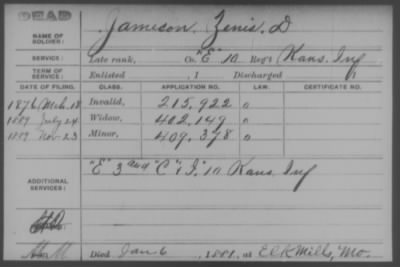 DEAD
NAME OF SOLDIER: Jameson, Zenis. D
SERVICE: Late rank, Co. "E" 10 Reg't Kans. Inf
TERM OF SERVICE: Enlisted , 1 Discharged , 1
DATE OF FILING. CLASS. APPLICATION NO. LAW. CERTIFICATE NO.
1876 Mch. 18 Invalid, 215,922 o
1889 July 24 Widow, 402,149 o
1889 Nov. 23 Minor, 409,378 o
ADDITIONAL SERVICES: "E" 3 and "C" & "I" 10 Kans. Inf
Died Jan 6, 1881, at Elk Mills, Mo.